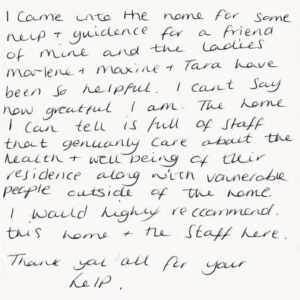 I came into the home for some
help + guidence for a friend
of mine and the ladies
marlene + maxine + Tara have
been so helpful. I cant say
how greatful I am. The home
I can tell is full of staff
that genuanly care about the
health + well being of their
residence along with vaunerable
people outside of the home
I would highly reccommend.
this home + the staff here.
Thank you all for your
help.